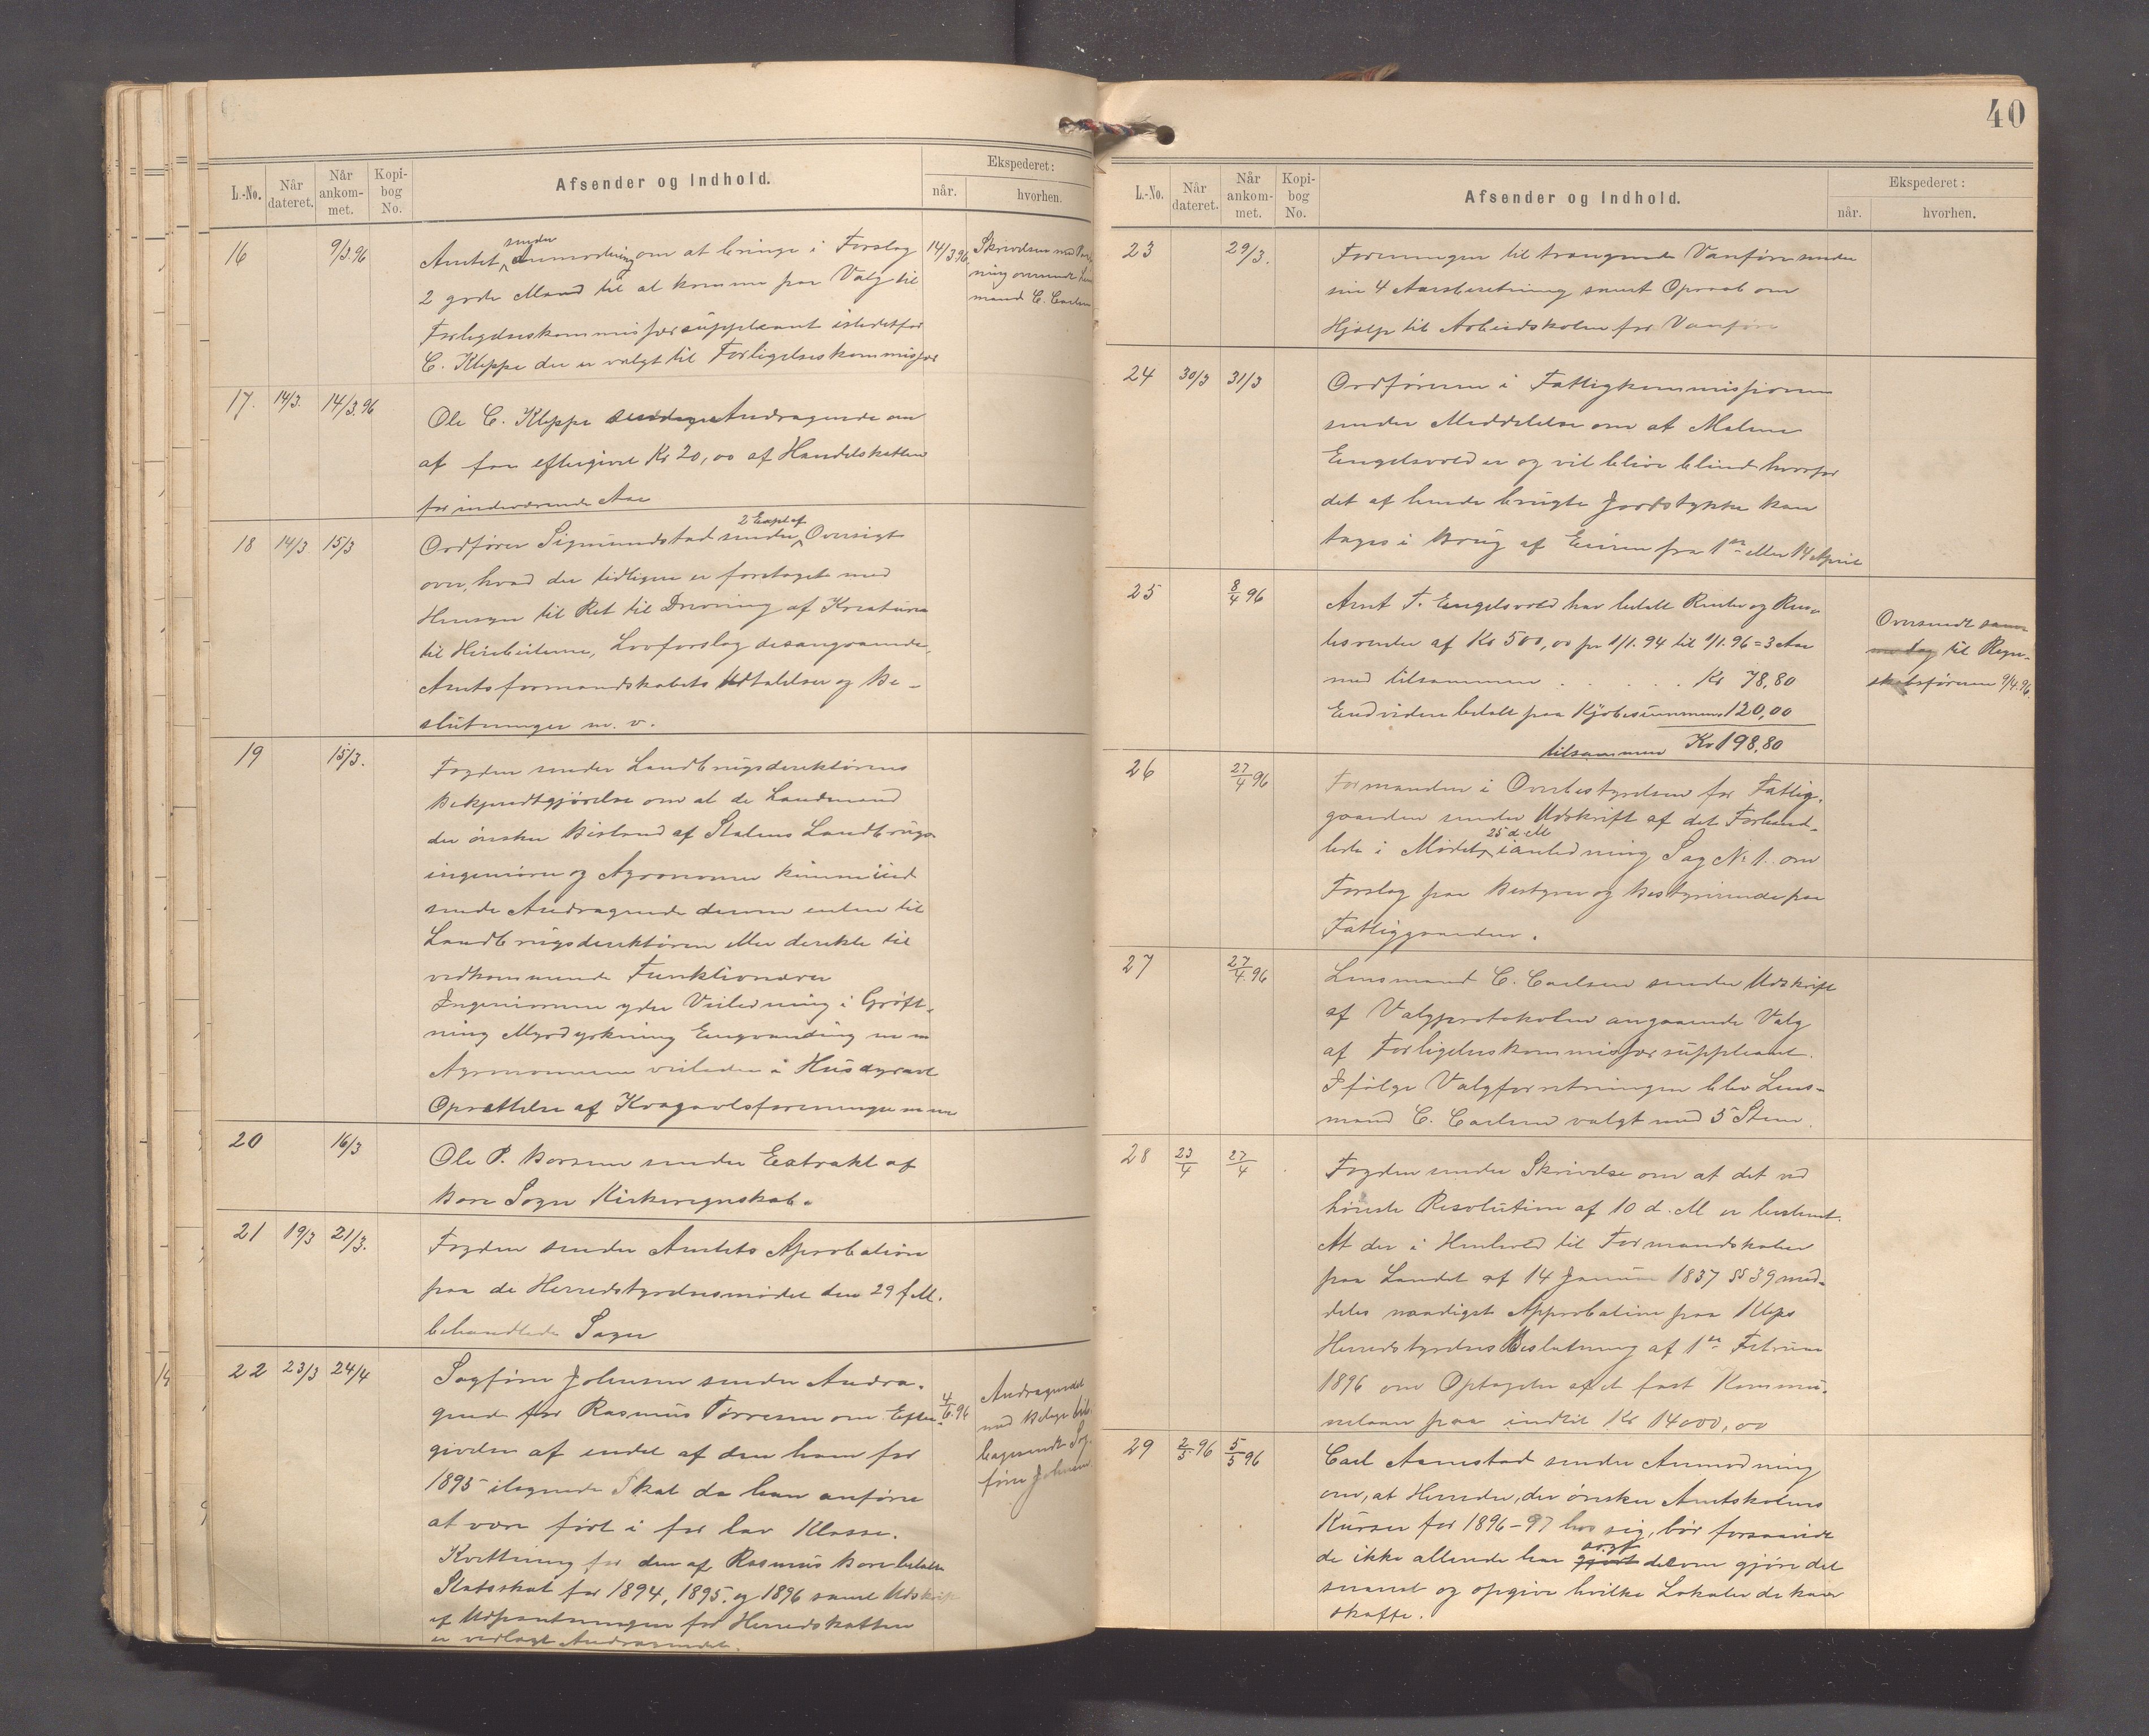 L.-No.
Når dateret.
Når ankommet.
Kopibog No.
Afsender og Indhold.
Ekspederet:
når.
hvorhen.
16
9/3.96
Amtet sender Anmodning om at bringe i Forslag
2 gode Mænd til at komme paa Valg til
Forligelseskommissærsuppleant istedetfor
C. Kleppe der er valgt til Forligelseskommissær
14/3.96.
Skrivelsen med
ning oversendt Lens
mand C. Carlsen
17.
14/3.
14/3.96
Ole C. Kleppe Andragende om
at faa eftergivet Kr 20,00 af Handelskatten
for indeværende Aar
18
14/3
15/3
Ordfører Sigmundstad sender 2 Expl af Oversigt
over, hvad der tidligere er foretaget med
Hensyn til Ret til Drivning af Kreature
til Heiebeiterne, Lovforslag desangaaende,
Amtsformandskabets Udtalelser og Be-
slutninger m. v.
19
15/3.
Fogden sender Landbrugsdirektørens
Bekjendtgjørelse om at de Landmænd
der ønsker Bistand af Statens Landbrugs
ingeniører og Agronomer kunne ind
sende Andragende derom enten til
Landbrugsdirektøren eller direkte til
vedkommende Funktionærer
Ingeniørerne yder Veiledning i Grøft-
ning Myrdyrkning Engvanding m m
Agronomerne veileder i Husdyravl
Oprettelse af Kvægavlsforeninger m m
20
16/3
Ole P. Borsen sender Extrakt af
Bore Sogns Kirkeregnskab.
21
19/3
21/3.
Fogden sender Amtets Aprobation
paa de Herredstyrelsesmødet den 29 f.M.
behandlede Sager
22
23/3
24/4
Sagfører Johnsen sender Andra-
gende for Rasmus Tørresen om Efter-
givelse af endel af den ham for
1895 ilignede Skat da han anføres
at være ført i for lav Klasse.
Kvittering for den af Rasmus Bore betalte
Statsskat for 1894, 1895, og 1896 samt Udskrift
af Udpantningen for Herredskatten
er vedlagt Andragendet.
4/6.96
Andragendet
med Bilage til-
bagesendt Sag-
fører Johnsen
40
L.-No.
Når dateret.
Når ankommet.
Kopibog No.
Afsender og Indhold.
Ekspederet:
når.
hvorhen.
23
29/3.
Foreningen til trængende Vanføre sender
sin 4 Aarsberetning samt Opraab om
Hjælp til Arbeidskolen for Vanføre
24
30/3
31/3
Ordføreren i Fattigkommissionen
sender Meddelelse om at Malene
Engelsvold er og vil blive blind hvorfor
det af hende brugte Jordstykke kan
tages i Brug af Eieren fra 1ste eller 14 April
25
8/4 96
Arnt T. Engelsvold har betalt Renter og Ren-
tesrenter af Kr 500,00 fra 1/1.94 til 1/1.96 = 3 Aar
med tilsammen . . . . . Kr 78,80
Endvidere betalt paa Kjøbesummen 120,00
tilsammen Kr 198,80
Oversendt sam-
me dag til Regn-
skabsføreren 9/4.96.
26
27/4 96
Formanden i Overbestyrelsen for Fattig-
gaarden sender Udskrift af det Forhand-
lede i Mødet 25 d.M ianledning Sag No 1. om
Forslag paa Bestyrer og Bestyrerinde paa
Fattiggaarden.
27
27/4 96
Lensmand C. Carlsen sender Udskrift
af Valgprotokolen angaaende Valg
af Forligelseskommissærsuppleant.
Ifølge Valgforretningen blev Lens-
mand C. Carlsen valgt med 5 Stem.
28
23/4
27/4
Fogden sender Skrivelse om at det ved
høieste Resolution af 10 d. M er bestemt.
At der i Henhold til Formandskabs
paa Landet af 14 Januar 1837 §§ 39 med-
deles naadigst Approbation paa Kleps
Herredstyrelses Beslutning af 1ste Februar
1896 om Optagelse af et fast Kommu-
nelaan paa indtil Kr 14000,00
29
2/5.96
5/5 96
Carl Aarrestad sender Anmodning
om, at Herreder, der ønsker Amtskolens
Kurser for 1896-97 hos sig, bør forsaavidt
de ikke allerede har gjort søgt derom gjøre det
snarest og opgive hvilke Lokaler de kan
skaffe.